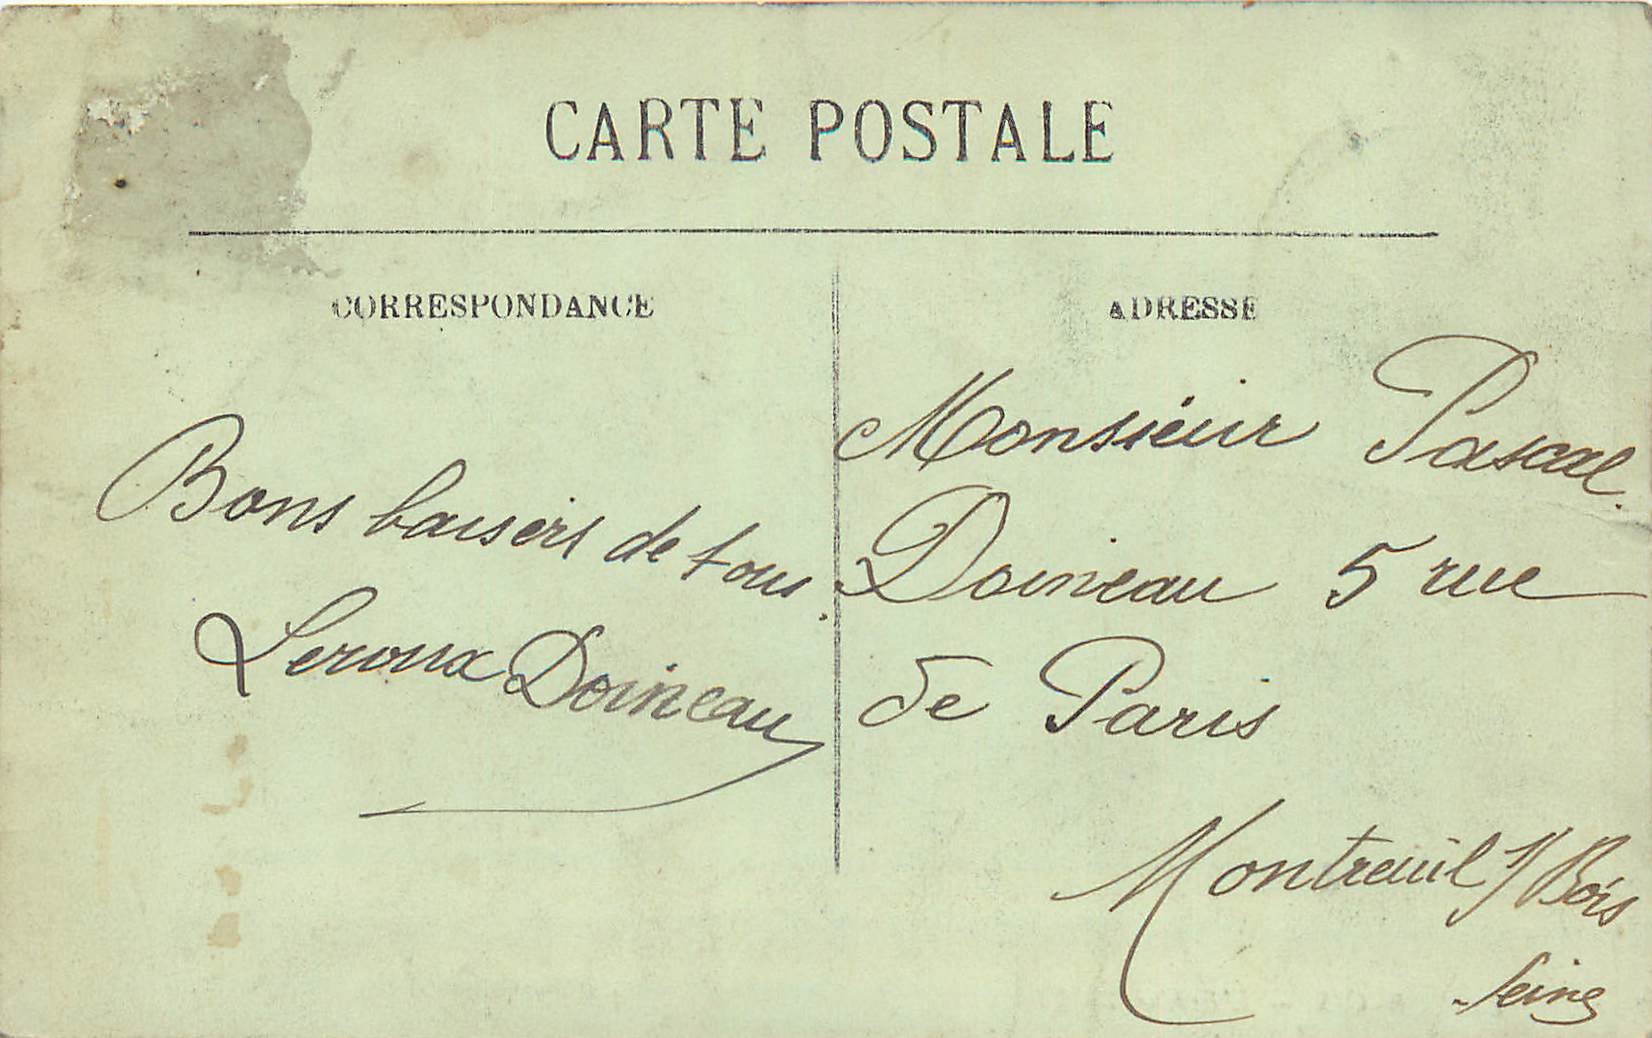 CARTE POSTALE
CORRESPONDANCE
ADRESSE
Bons baisers de tous.
Leroux Doineau
Monsieur Pascal
Doineau 5 rue
de Paris
Montreuil s/Bois
Seine